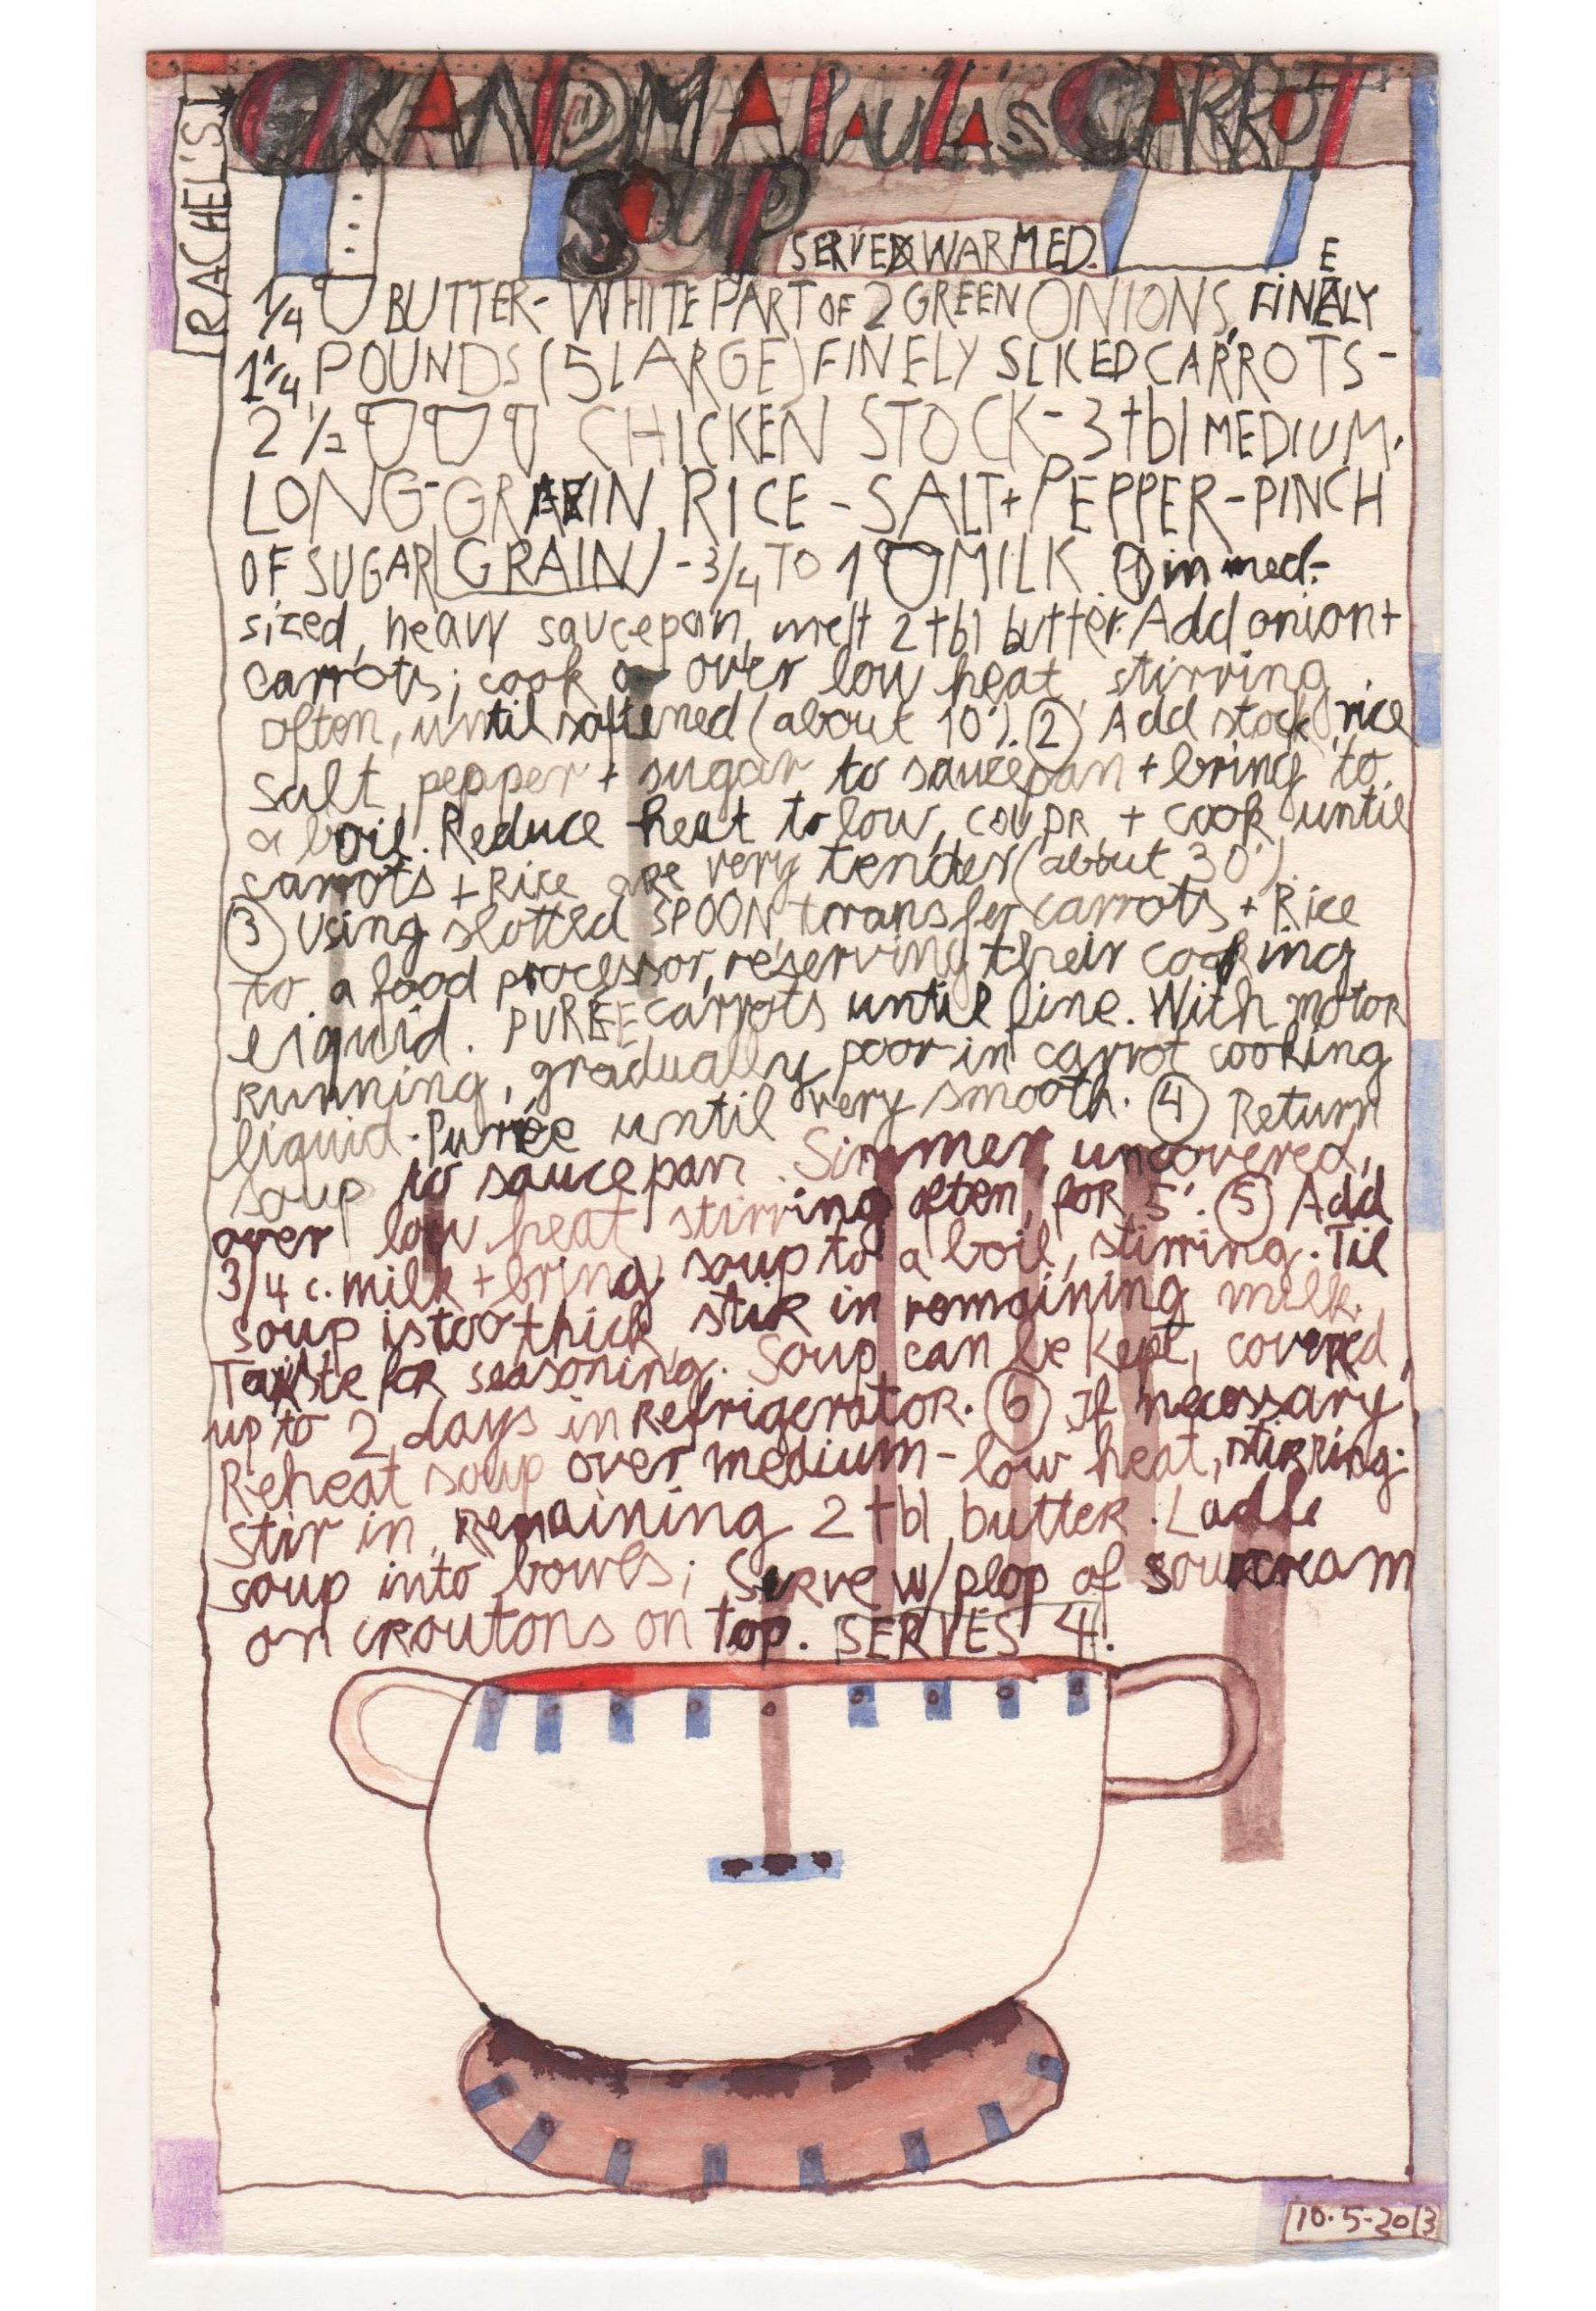 RACHEL'S
GRANDMA PAULAS CARROT
SOUP
SERVED WARMED.
1/4 BUTTER- WHITE PART OF 2 GREEN ONIONS, FINELY
1 1/4 POUNDS (5 LARGE) FINELY SLICED CARROTS -
2 1/2 CHICKEN STOCK - 3 tbl MEDIUM.
LONG-GRAIN RICE - SALT + PEPPER - PINCH
OF SUGAR (GRAIN) - 3/4 TO 1 MILK ① in med-
sized, heavy saucepan, melt 2 tbl butter. Add onion +
carrots; cook over low heat, stirring
often, until softened (about 10'). ② Add stock, rice
salt, pepper + sugar to saucepan + bring to
a boil. Reduce heat to low, cover + cook until
carrots + Rice are very tender (about 30').
③ Using slotted SPOON transfer carrots + Rice
to a food processor, reserving their cooking
liquid. PUREE carrots until fine. With motor
Running, gradually poor in carrot cooking
liquid. Purée until very smooth. ④ Return
soup to saucepan. Simmer, uncovered,
over low heat stirring often, for 5'. ⑤ Add
3/4 c. milk + bring soup to a boil, stirring. Til
soup is too thick stir in remaining milk.
Taste for seasoning. Soup can be kept, covered,
up to 2 days in Refrigerator. ⑥ If necessary
Reheat soup over medium-low heat, stirring.
stir in Remaining 2 tbl butter. Ladle
soup into bowls; Serve w/plop of sourcream
or croutons on top. SERVES 4.
10-5-2013